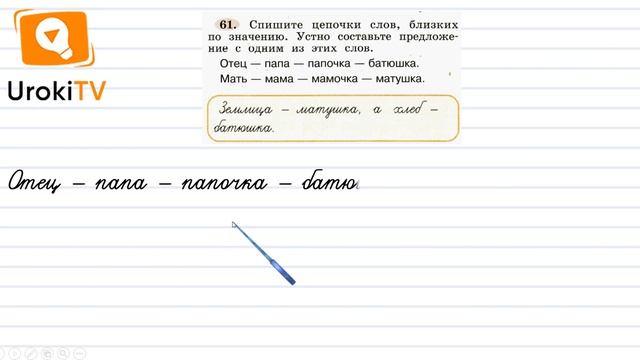 61. Спишите цепочки слов, близких
по значению. Устно составьте предложе-
ние с одним из этих слов.
Отец — папа — папочка — батюшка.
Мать — мама — мамочка — матушка.
Землица – матушка, а хлеб –
батюшка.
UrokiTV
Отец – папа – папочка – батю